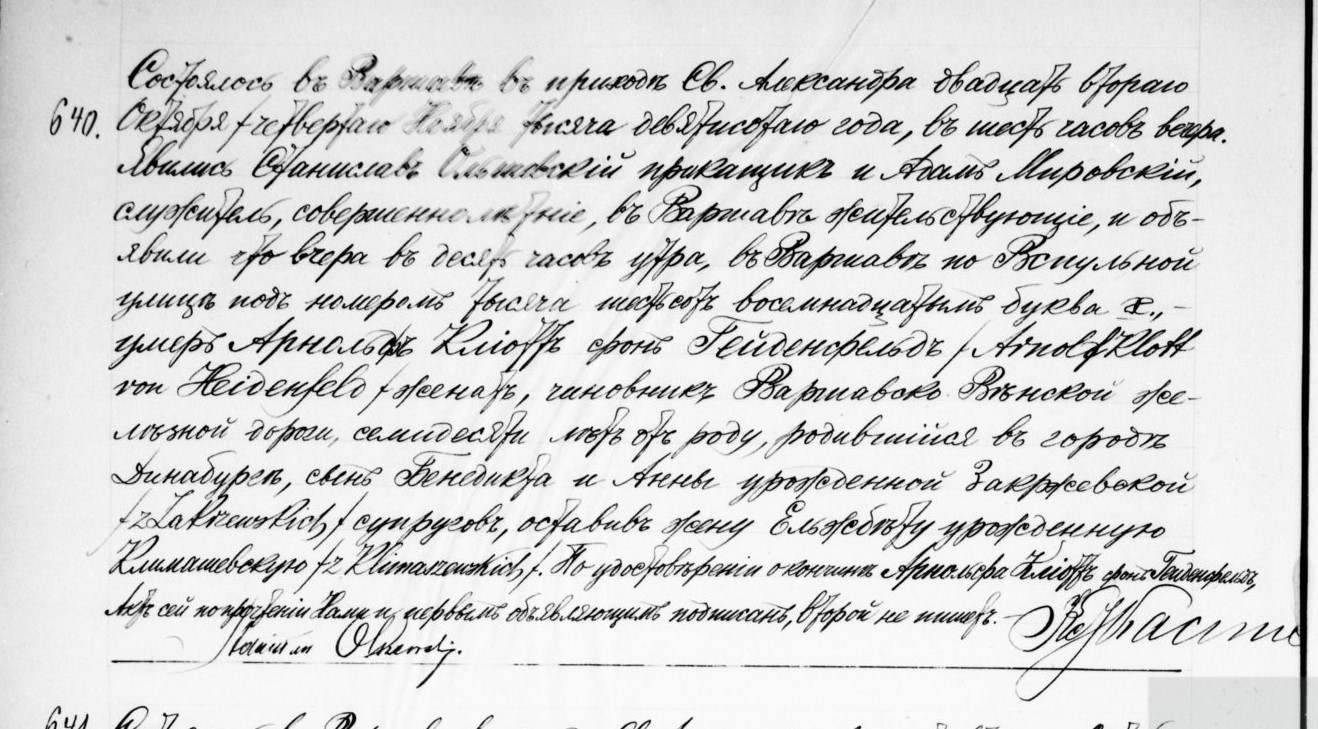 Состоялось въ Варшавѣ въ приходѣ Св. Александра двадцать втораго
640. Октября / четвертаго Ноября тысяча девятисотаго года, въ шесть часовъ вечера.
Явились Станиславъ прикащикъ и Адамъ Мировскій,
служитель, совершеннолѣтніе, въ Варшавѣ жительствующіе, и объ-
явили что вчера въ десять часовъ утра, въ Варшавѣ по Вспульной
улицѣ подъ номеромъ тысяча шестьсотъ восемнадцатымъ буква х., -
умеръ Арнольфъ Клоттъ фонъ Гейденфельдъ / Arnolf Klott
von Heidenfeld / женатъ, чиновникъ Варшавско Вѣнской же-
лѣзной дороги, семидесяти лѣтъ отъ роду, родившійся въ городѣ
Динабургѣ, сынъ Бенедикта и Анны урожденной Закржевской
/z Zakrzewskich/ супруговъ, оставивъ жену Ельжбѣту урожденную
Климашевскую /z Klimaszewskich/. По удостовѣреніи о кончинѣ Арнольфа Клоттъ фонъ Гейденфельдъ,
Актъ сей по прочтеніи Нами и первымъ объявляющимъ подписанъ, второй не пишетъ. -
641.